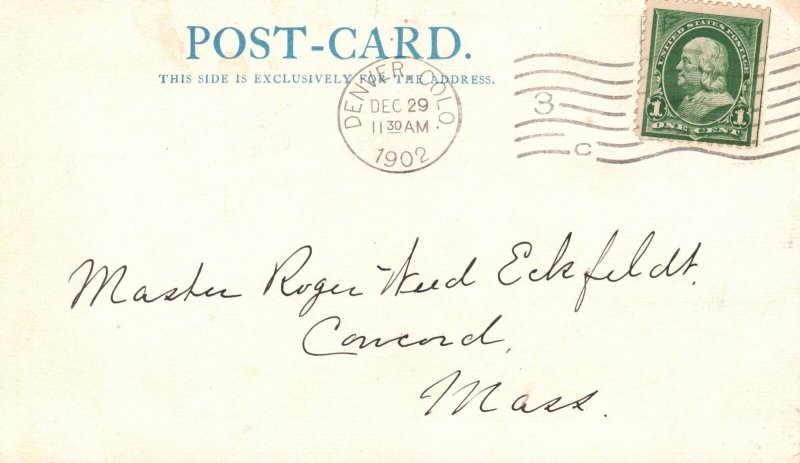 POST-CARD.
THIS SIDE IS EXCLUSIVELY FOR THE ADDRESS.
DENVER, COLO.
DEC 29
11 30 AM
1902
3
C
UNITED STATES POSTAGE
1 1
ONE CENT
Master Roger Weed Eckfeldt.
Concord,
Mass.